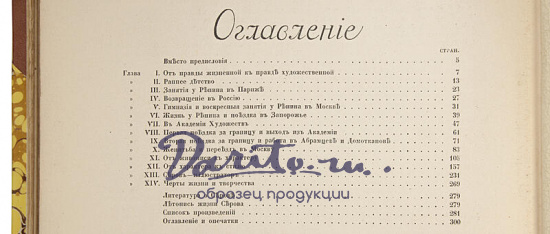 Оглавленіе
СТРАН.
Вмѣсто предисловія 5
Глава I. Отъ правды жизненной къ правдѣ художественной 7
» II. Раннее дѣтство 13
» III. Занятія у Рѣпина въ Парижѣ 23
» IV. Возвращеніе въ Россію 27
» V. Гимназія и воскресныя занятія у Рѣпина въ Москвѣ 31
» VI. Жизнь у Рѣпина и поѣздка въ Запорожье 39
» VII. Въ Академіи Художествъ 47
» VIII. поѣздка за границу и выходъ изъ Академіи 61
» IX. поѣздка за границу и работа въ Абрамцевѣ и Домотканове 71
» X. Женитьба и переѣздъ въ Москву
» XI. Отъ 105
» XII. Отъ 157
» XIII. Сѣровъ-иллюстраторъ 231
» XIV. Черты жизни и творчества 269
Литература о 279
Лѣтопись жизни Сѣрова 279
Списокъ произведеній 281
Оглавленіе и опечатки 300
Parito.ru..
образец продукции.